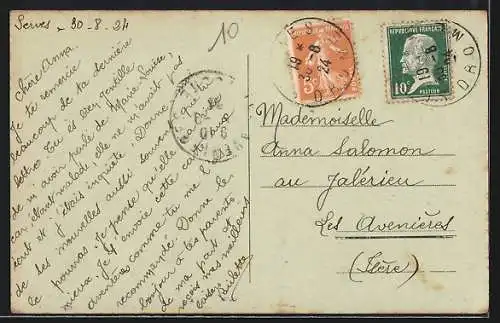 Serves - 30-8-24
10
Chère Anna.
Je te remercie
beaucoup de ta dernière
lettre. Tu es bien gentille
de m'avoir parlé de Marie Louise,
car, étant malade, elle ne m'avait pas
écrit et j'étais inquiète. Donne
de ses nouvelles aussi souvent que tu
le pourras. Je pense qu'elle va
mieux. Je t'envoie cette carte aux
avenières comme tu me l'as
recommandé. Donne le
bonjour à tes parents
de ma part et
reçois mes meilleurs
baisers
Juliette
REPUBLIQUE FRANÇAISE
POSTES
10c
PASTEUR
5c
19 * 8
24
DROME
Mademoiselle
Anna Salomon
au Jalérieu
Les Avenières
(Isère)